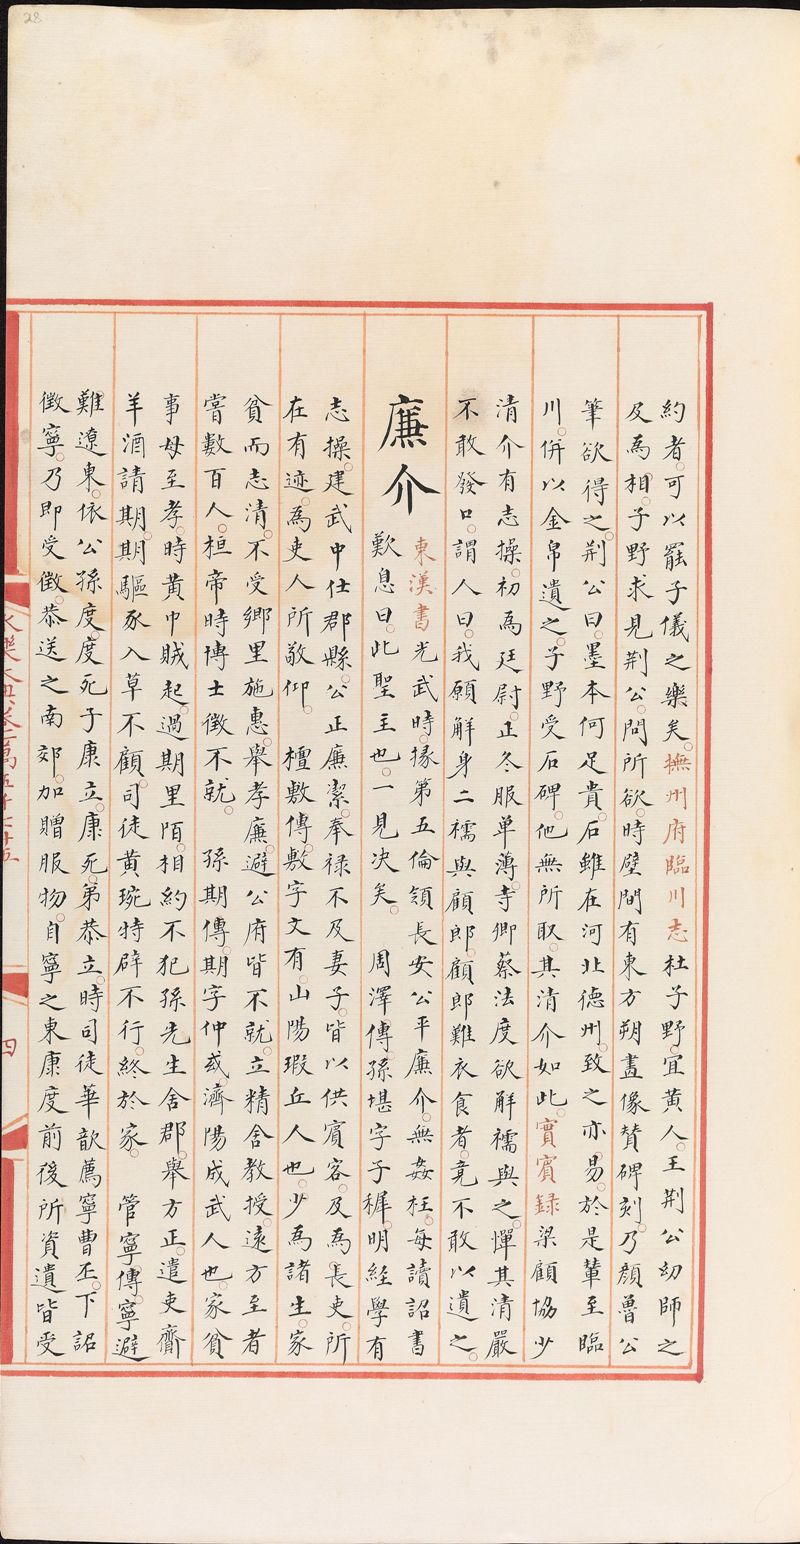 約者可以罷子儀之樂矣撫州府臨川志杜子野宜黃人王荆公幼師之
及為相子野求見荆公問所欲時壁間有東方朔畫像贊碑刻乃顏魯公
筆欲得之荆公曰墨本何足貴石雖在河北德州致之亦易於是輦至臨
川併以金帛遺之子野受石碑他無所取其清介如此實賓録梁顧協少
清介有志操初為廷尉正冬服单薄寺卿蔡法度欲解襦與之憚其清嚴
不敢發口謂人曰我願解身上襦與顧郎顧郎難衣食者竟不敢以遺之
廉介
東漢書光武時掾第五倫領長安公平廉介無姦枉每讀詔書
歎息曰此聖主也一見决矣 周澤傳孫堪字子穉明經學有
志操建武中仕郡縣公正廉潔奉禄不及妻子皆以供賓客及為長吏所
在有迹為吏人所敬仰 檀敷傳敷字文有山陽瑕丘人也少為諸生家
貧而志清不受鄉里施惠舉孝廉避公府皆不就立精舍教授遠方至者
嘗數百人桓帝時博士徵不就 孫期傳期字仲彧濟陽成武人也家貧
事母至孝時黃巾賊起過期里陌相約不犯孫先生舍郡舉方正遣吏齎
羊酒請期期驅豕入草不顧司徒黃琬特辟不行終於家 管寧傳寧避
難遼東依公孫度度死子康立康死弟恭立時司徒華歆薦寧曹丕下詔
徵寧乃即受徵恭送之南郊加贈服物自寧之東康度前後所資遺皆受
四
28